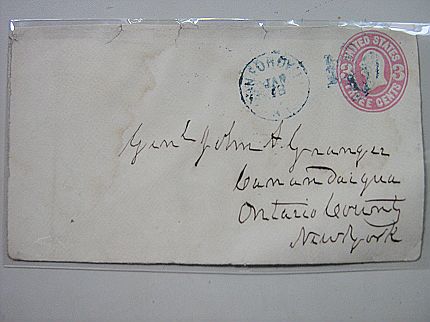 UNITED STATES
3 3
THREE CENTS
JAN
18
Genl John A Granger
Canandaigua
Ontario County
New York